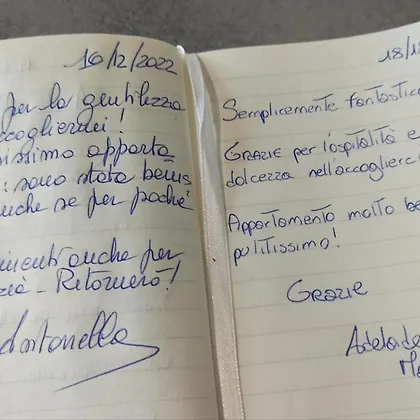 16/12/2022
per la gentilezza
accoglierci!
issimo apparta
: sono stata benis
anche se per poche
menti anche per
- Ritornerò!
Antonella
18/1
Semplicemente fantastic
GRAZIE per l'ospitalità e
dolcezza nell'accoglierc
Appartamento molto be
pulitissimo!
GRAZIE
Adelaide
Ma